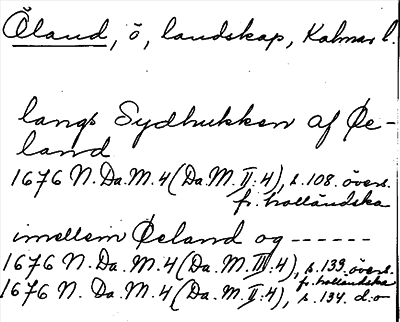 Öland, ö, landskap, Kalmar l.
langs Sydhukken af Øe-
land
1676 N. Da. M. 4 (Da. M. II:4), s. 108. övers.
fr. holländska
imellem Øeland og ------
1676 N. Da. M. 4 (Da. M. III:4), s. 133. övers.
fr. holländska
1676 N. Da. M. 4 (Da. M. II:4), s. 134. d:o